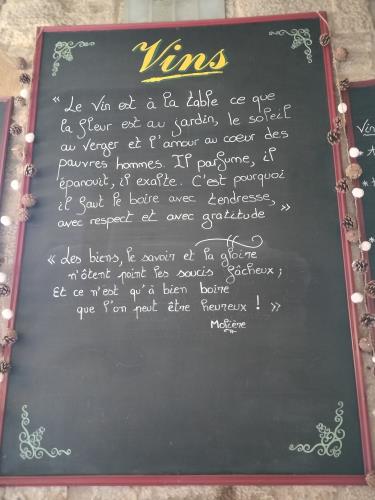 Vins
« Le vin est à la table ce que
la fleur est au jardin, le soleil
au verger et l'amour au cœur des
pauvres hommes. Il parfume, il
épanouit, il exalte.. C'est pourquoi
il faut le boire avec tendresse,
avec respect et avec gratitude »
« Les biens, le savoir et la gloire
n'ôtent point les soucis fâcheux ;
Et ce n'est qu'à bien boire
que l'on peut être heureux ! »
Molière